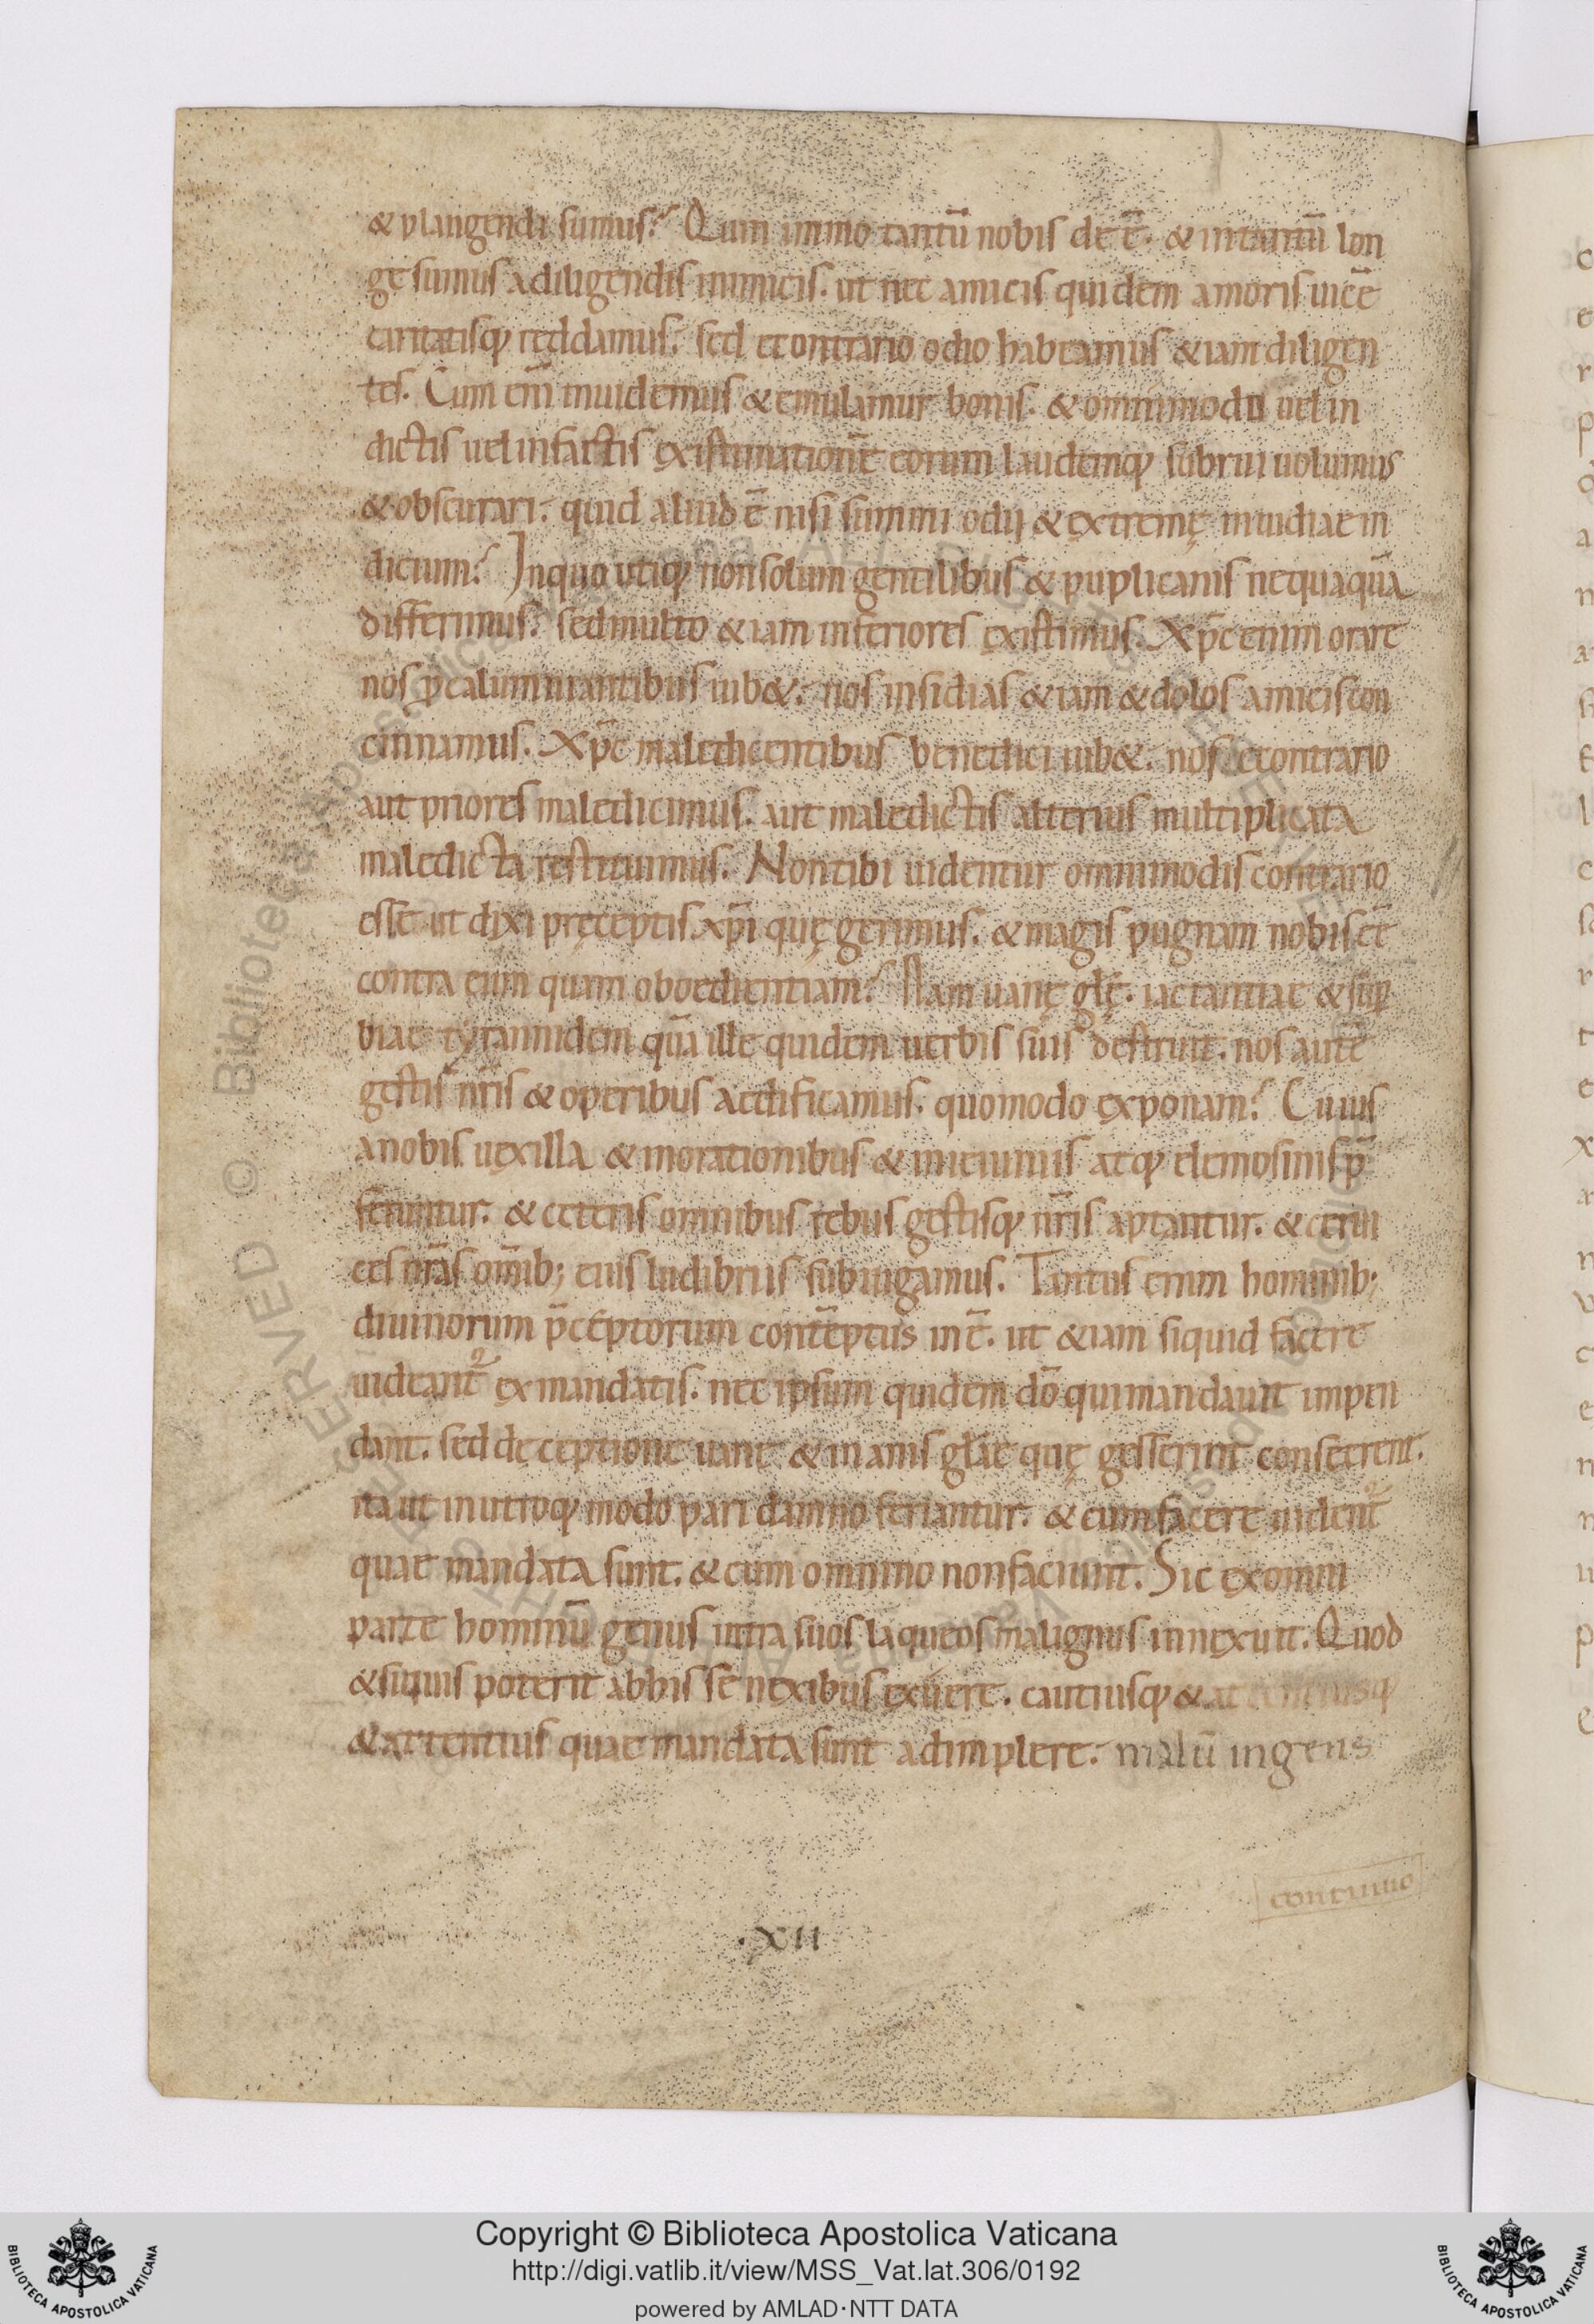 & plangendi sumus? Quin immo tantū nobis deē. & intantū lon
ge sumus adiligendis inimicis. ut nec amicis quidem amoris uicē
caritatisq; ręddamus. sed econtrario odio habeamus &iam diligen
tes. Cum em̄ inuidemus & emulamur bonis. & omnimodis uel in
dictis uel infactis ęxistimationē eorum laudemq; subrui uolumus
& obscurari. quid aliud ē nisi summi odii & ęxtremę inuidiae in
dicium? Inquo utiq; nonsolum gentilibus & puplicanis nequaquā
differimus. sedmulto &iam inferiores ęxistimus. Xp̄c enim orare
nos p̱ calumniantibus iub&. nos insidias &iam & dolos amicis con
cinnamus. Xp̄c maledicentibus benedici iub&. nos econtrario
aut priores maledicimus. aut maledictis alterius multiplicata
maledicta restituimus. Nontibi uidentur omnimodis contrario
esse ut dixi pręceptis xp̄i quę gerimus. & magis pugnam nobis eē
contra eum quam oboedientiam? Nam uanę gl̄ę. iactantiae & sup̱
biae tyrannidem quā ille quidem uerbis suis destruit. nos autē
gestis nr̄is & operibus aedificamus. quomodo ęxponam? Cuius
anobis uęxilla & inorationibus & inieiuniis atq; elemosinis p̄
feruntur. & ceteris omnibus rebus gestisq; nr̄is aptantur. & cerui
ces nr̄as om̄ib; eius ludibriis subiugamus. Tantus enim hominib;
diuinorum p̄ceptorum contēptus inē. ut &iam siquid facere
uideant᷑ ęx mandatis. nec ipsum quidem dō qui mandauit impen
dant. sed dęceptione uanę & inanis gl̄ae quę gesserint consecrent.
ita ut inutroq; modo pari damno feriantur. & cum facere uident᷑
quae mandata sunt. & cum omnino nonfaciunt. Sic ęxomni
parte hominū genus intra suos laqueos malignus innęxuit. Quod
& siquis poterit abhis se nęxibus exuere. cautiusq; & attentiusq;
& attentius quae mandata sunt adimplere. malū ingens
continuo
.XII
Copyright © Biblioteca Apostolica Vaticana
http://digi.vatlib.it/view/MSS_Vat.lat.306/0192
powered by AMLAD·NTT DATA
BIBLIOTECA APOSTOLICA VATICANA
BIBLIOTECA APOSTOLICA VATICANA